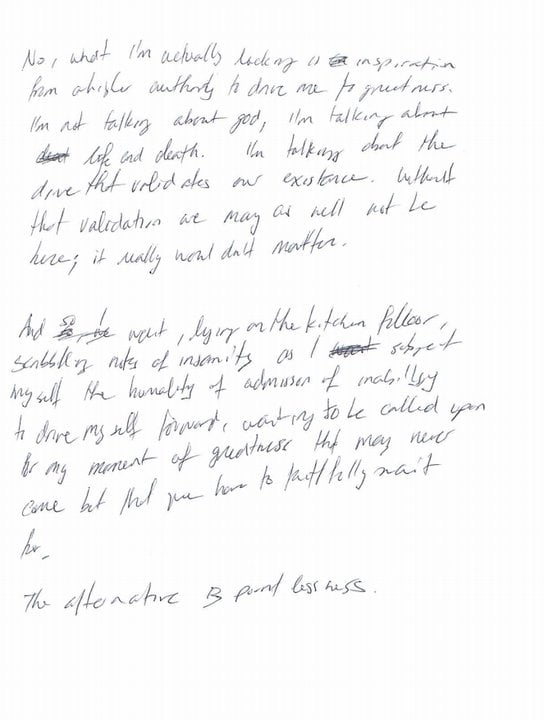 No, what I'm actually lacking is inspiration
from a higher authority to drive me to greatness.
I'm not talking about god, I'm talking about
life and death. I'm talking about the
drive that validates our existence. Without
that validation we may as well not be
here; it really wouldn't matter.
And so I wait, lying on the kitchen fulloor,
scribbling notes of insanity as I subject
myself the humality of admission of inability
to drive myself forward, waiting to be called upon
for my moment of greatness that may never
come but that you have to faithfully wait
for.
The alternative is pointlessness.